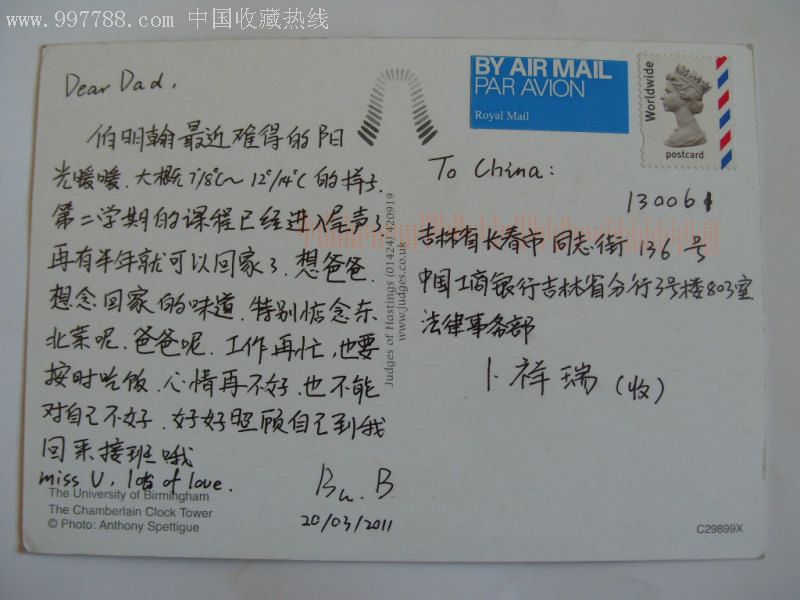 www.997788.com 中国收藏热线
Dear Dad,
伯明翰最近难得的阳
光暖暖、大概7/8℃~12°/14℃的样子.
第二学期的课程已经进入尾声了,
再有半年就可以回家了、想爸爸、
想念回家的味道、特别惦念东
北菜呢、爸爸呢、工作再忙、也要
按时吃饭、心情再不好、也不能
对自己不好、好好照顾自己到我
回来接班哦
miss U, lots of love.
Bu. B
20/03/2011
The University of Birmingham
The Chamberlain Clock Tower
© Photo: Anthony Spettigue
Judges of Hastings (01424) 420919
www.judges.co.uk
BY AIR MAIL
PAR AVION
Royal Mail
Worldwide
postcard
To China:
130061
吉林省长春市同志街136号
中国工商银行吉林省分行3号楼803室
法律事务部
卜祥瑞(收)
C29899X